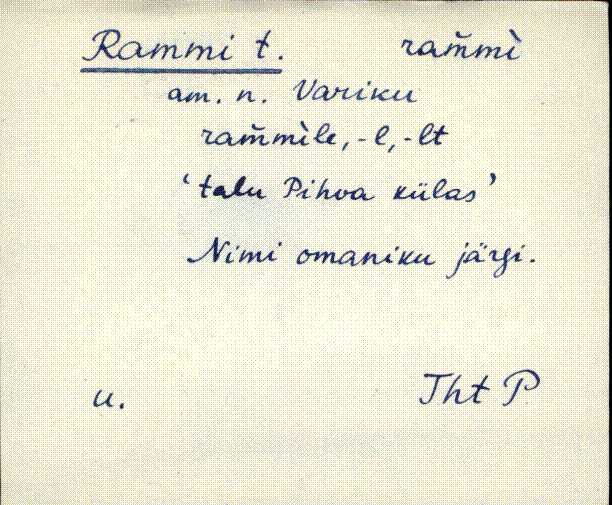 Rammi t. ram̆mì
am. n. Variku
ram̆mìle, -l, -lt
‘talu Pihva külas’
Nimi omaniku järgi.
u. Tht P